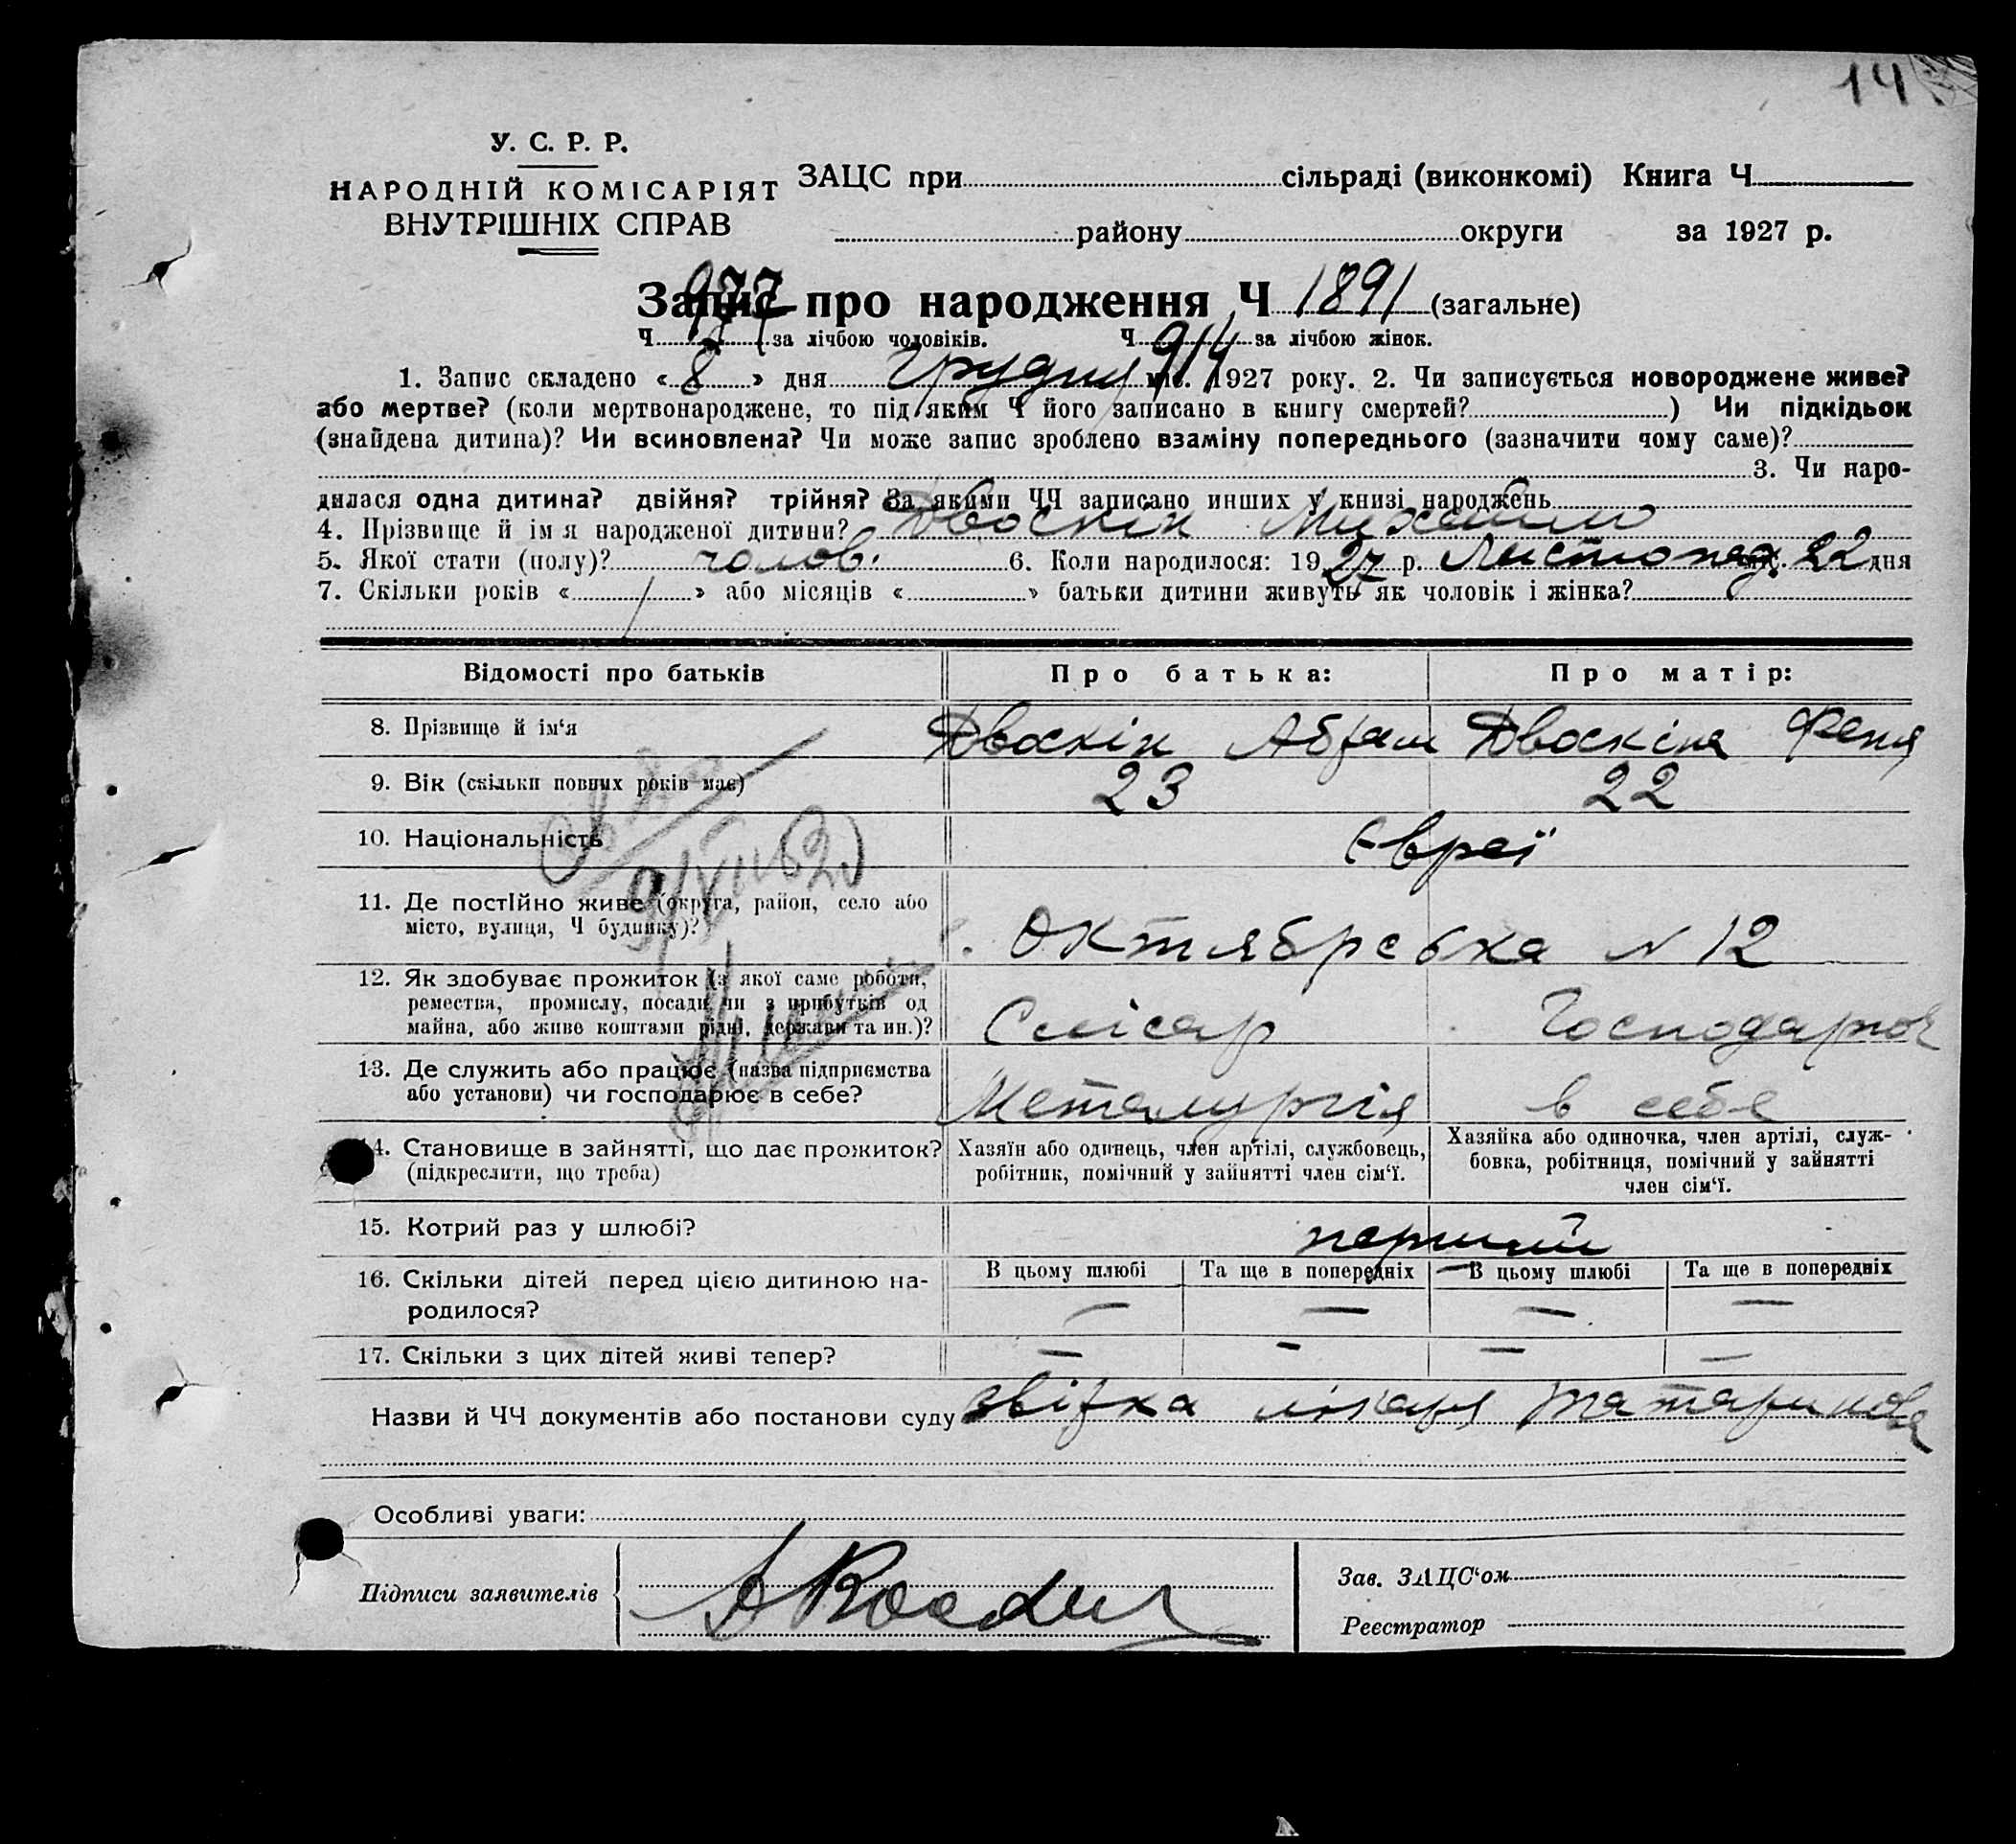 14
У. С. Р. Р.
НАРОДНІЙ КОМІСАРІЯТ
ВНУТРІШНІХ СПРАВ
ЗАЦС при сільраді (виконкомі) Книга Ч
району округи за 1927 р.
Запис про народження Ч 1891 (загальне)
Ч 977 за лічбою чоловіків. Ч 914 за лічбою жінок.
1. Запис складено « 8 » дня Грудня міс. 1927 року. 2. Чи записується новороджене живе?
або мертве? (коли мертвонароджене, то під яким Ч його записано в книгу смертей? ) Чи підкідьок
(знайдена дитина)? Чи всиновлена? Чи може запис зроблено взаміну попереднього (зазначити чому саме)?
3. Чи наро-
дилася одна дитина? двійня? трійня? За якими ЧЧ записано инших у книзі народжень
4. Прізвище й ім я народженої дитини? Двоскін Михайло
5. Якої стати (полу)? чолов. 6. Коли народилося: 1927 р. Листопад. міс. 22 дня
7. Скільки років « » або місяців « » батьки дитини живуть як чоловік і жінка?
Відомості про батьків Про батька: Про матір:
8. Прізвище й ім'я Двоскін Абрам Двоскіна Феня
9. Вік (скільки повних років має) 23 22
10. Національність Євреї
11. Де постійно живе (округа, район, село або
місто, вулиця, Ч будинку)? Октябрська N 12
12. Як здобуває прожиток (з якої саме роботи,
ремества, промислу, посади чи з прибутків од
майна, або живе коштами рідні, держави та ин.)? Слісар Господарює
13. Де служить або працює (назва підприємства
або установи) чи господарює в себе? Металургія в себе
14. Становище в зайнятті, що дає прожиток?
(підкреслити, що треба)
Хазяїн або одинець, член артілі, службовець,
робітник, помічний у зайнятті член сім'ї.
Хазяйка або одиночка, член артілі, служ-
бовка, робітниця, помічний у зайнятті
член сім'ї.
15. Котрий раз у шлюбі? перший
16. Скільки дітей перед цією дитиною на-
родилося?
В цьому шлюбі Та ще в попередніх В цьому шлюбі Та ще в попередніх
— — — —
17. Скільки з цих дітей живі тепер? — — — —
Назви й ЧЧ документів або постанови суду звірка лікаря Татаринова
Особливі уваги:
Підписи заявителів
Зав. ЗАЦС'ом
Реєстратор